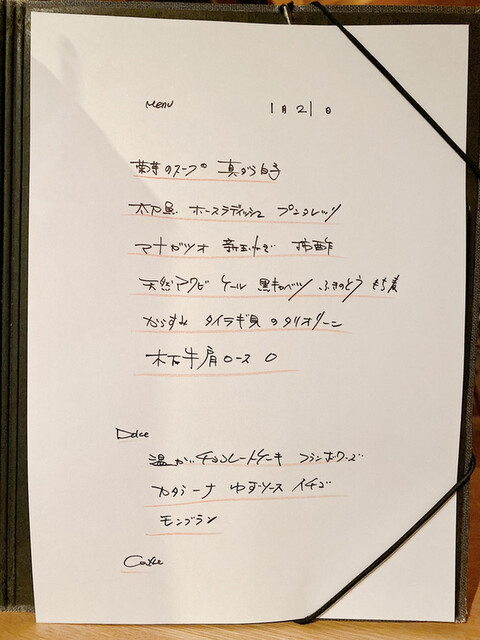 Menu 1月21日
菊芋のスープ 真だら白子
太刀魚 ホースラディッシュ プンタレッラ
マナガツオ 新玉ねぎ 柿酢
天然アワビ ケール 黒キャベツ ふきのとう もち麦
からすみ タイラギ貝のタリオリーニ
牛肩ロース
Dolce
温かいチョコレートケーキ フランボワーズ
カタラーナ ゆずソース イチゴ
モンブラン
Caffe